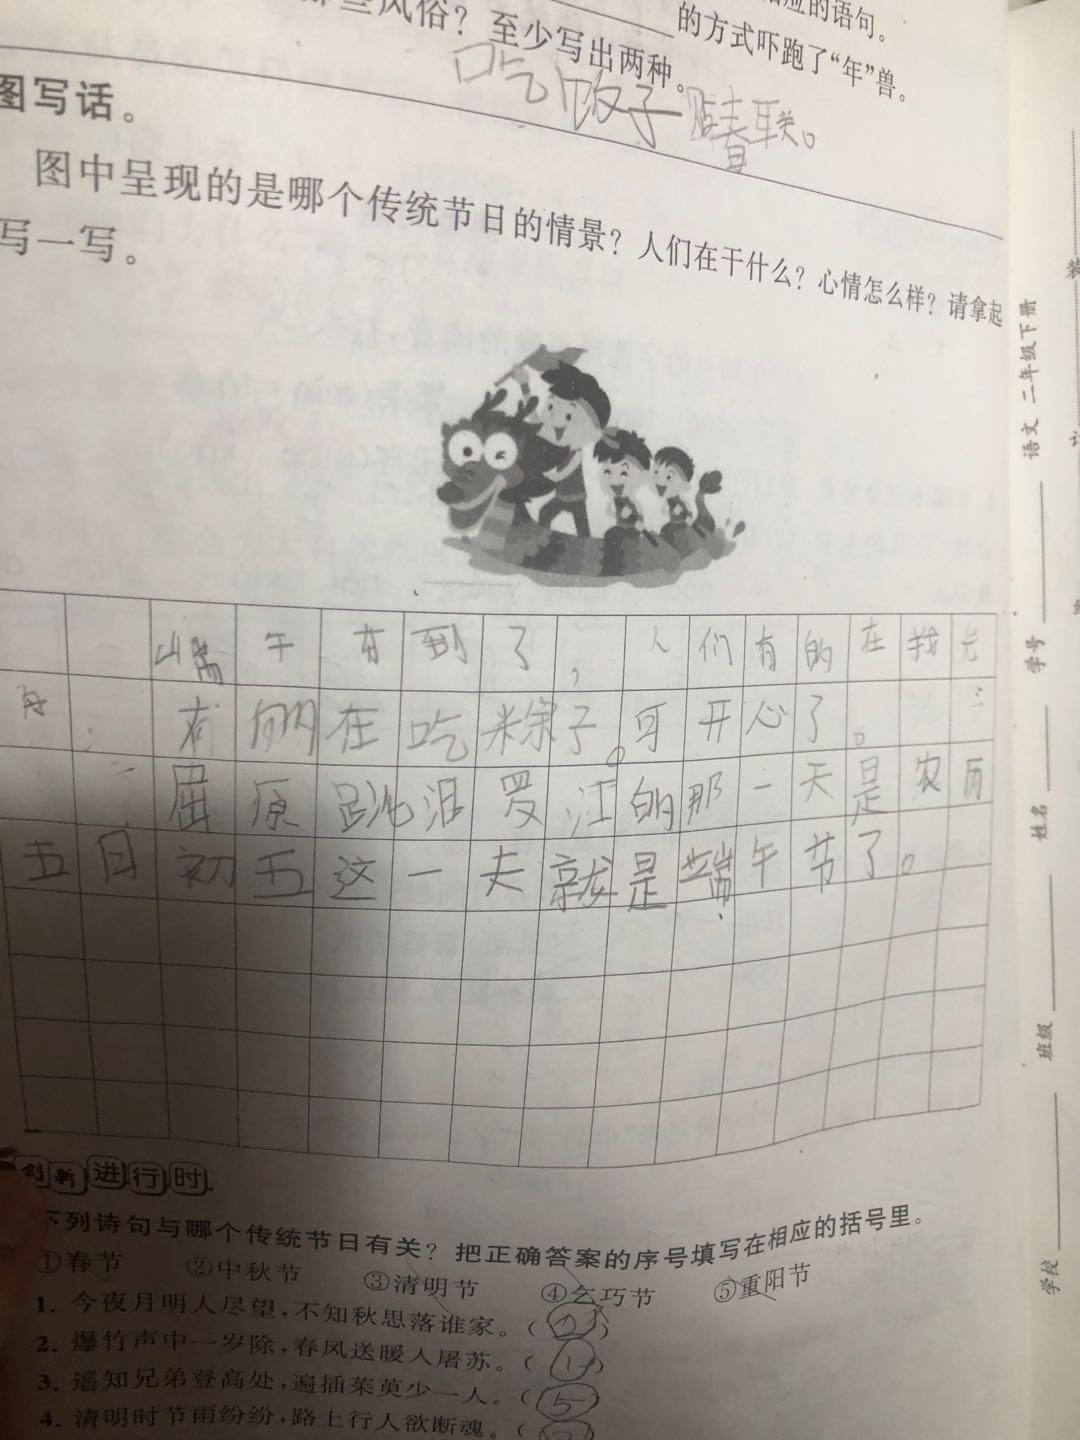 应的语句。
的方式吓跑了“年”兽。
风俗？至少写出两种。
吃 子 贴春联。
图写话。
图中呈现的是哪个传统节日的情景？人们在干什么？心情怎么样？请拿起
写一写。
端午有到了，人们有的在找龙
舟。有的在吃粽子。可开心了。
屈原跳汨罗江的那一天是农历
五日初五这一夫就是端午节了。
语文 二年级下册
学号
姓名
班级
学校
装
创新进行时
下列诗句与哪个传统节日有关？把正确答案的序号填写在相应的括号里。
①春节 ②中秋节 ③清明节 ④乞巧节 ⑤重阳节
1. 今夜月明人尽望，不知秋思落谁家。（2）
2. 爆竹声中一岁除，春风送暖入屠苏。（1）
3. 遥知兄弟登高处，遍插茱萸少一人。（5）
4. 清明时节雨纷纷，路上行人欲断魂。